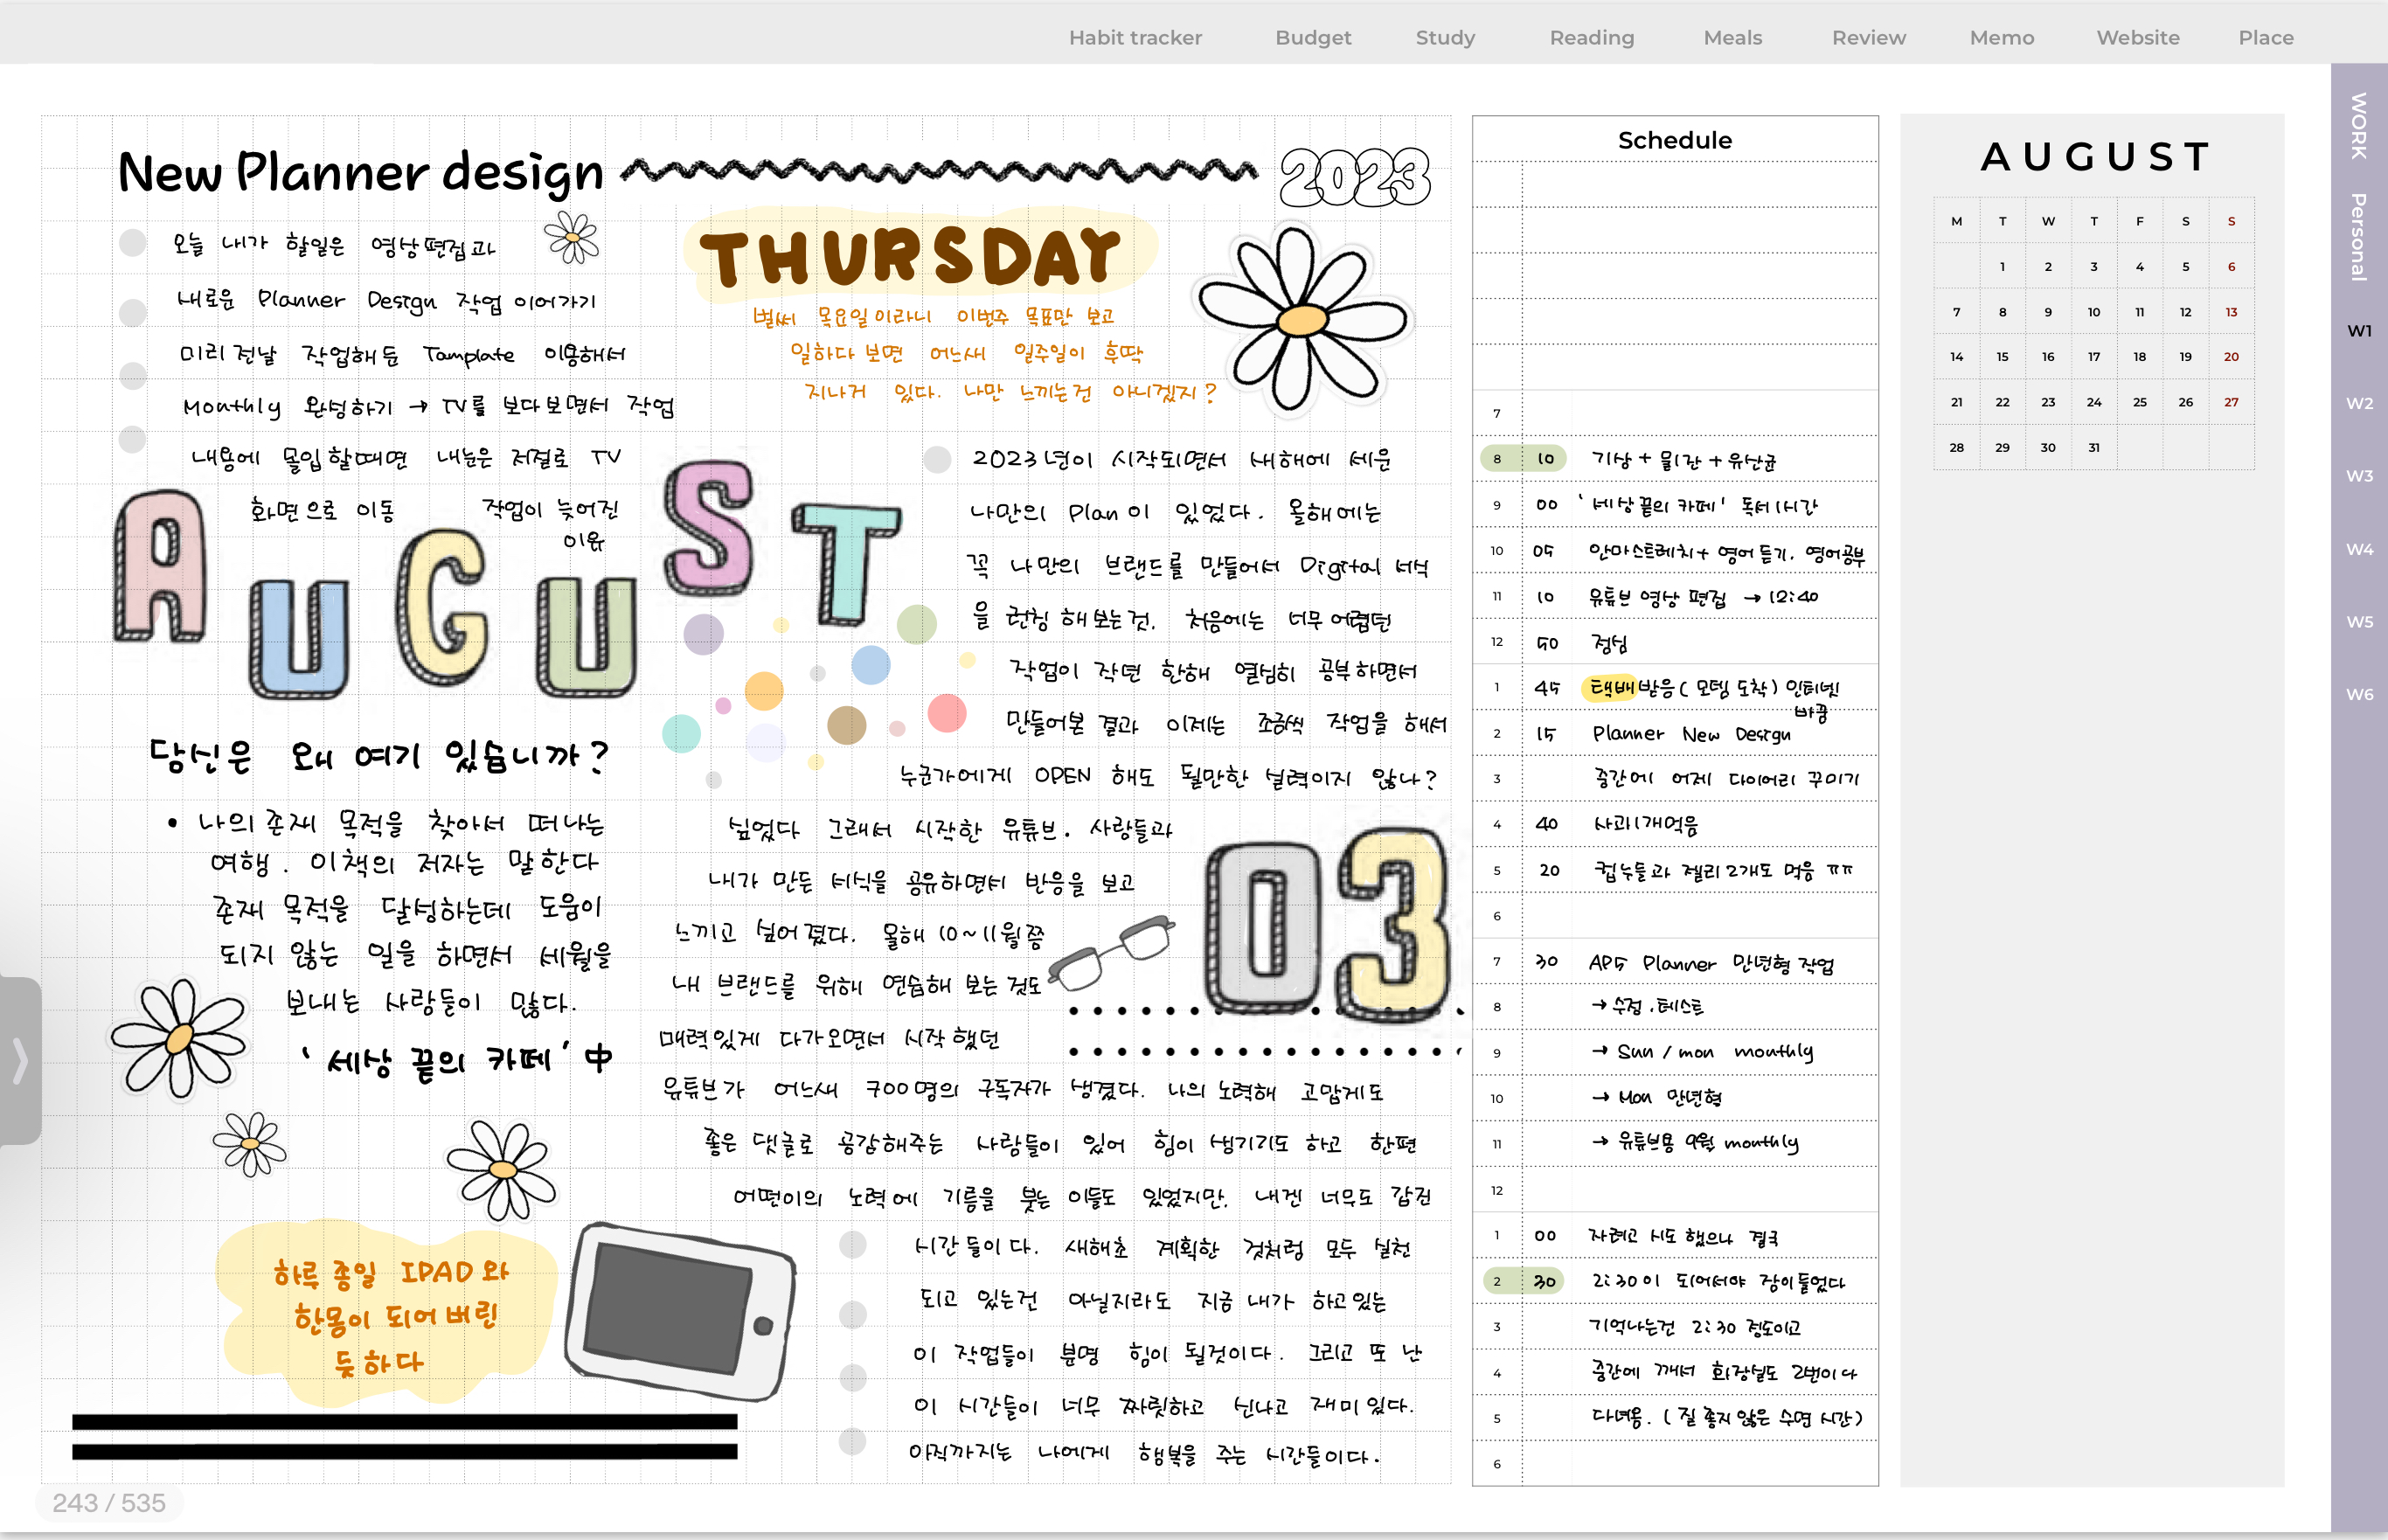 Habit tracker Budget Study Reading Meals Review Memo Website Place
New Planner design
2023
오늘 내가 할일은 영상편집과
새로운 Planner Design 작업 이어가기
미리 전날 작업해둔 Tamplate 이용해서
Monthly 완성하기 → TV를 보다보면서 작업
내용에 몰입할때면 내눈은 저절로 TV
화면으로 이동
작업이 늦어진
이유
THURSDAY
벌써 목요일이라니 이번주 목표만 보고
일하다 보면 어느새 일주일이 후딱
지나거 있다. 나만 느끼는건 아니겠지?
AUGUST
2023년이 시작되면서 새해에 세운
나만의 Plan이 있었다. 올해에는
꼭 나만의 브랜드를 만들어서 Digital 서식
을 런칭 해보는것. 처음에는 너무 어렵던
작업이 작년 한해 열심히 공부하면서
만들어본 결과 이제는 조금씩 작업을 해서
누군가에게 OPEN 해도 될만한 실력이지 않나?
싶었다 그래서 시작한 유튜브. 사람들과
내가 만든 서식을 공유하면서 반응을 보고
느끼고 싶어졌다. 올해 10~11월쯤
내 브랜드를 위해 연습해 보는 것도
매력있게 다가오면서 시작했던
유튜브가 어느새 700명의 구독자가 생겼다. 나의 노력해 고맙게도
좋은 댓글로 공감해주는 사람들이 있어 힘이 생기기도 하고 한편
어떤이의 노력에 기름을 붓는 이들도 있었지만, 내겐 너무도 값진
시간들이다. 새해초 계획한 것처럼 모두 실천
되고 있는건 아닐지라도 지금 내가 하고있는
이 작업들이 분명 힘이 될것이다. 그리고 또 난
이 시간들이 너무 짜릿하고 신나고 재미있다.
아직까지는 나에게 행복을 주는 시간들이다.
03
당신은 왜 여기 있습니까?
• 나의 존재 목적을 찾아서 떠나는
여행. 이책의 저자는 말한다
존재 목적을 달성하는데 도움이
되지 않는 일을 하면서 세월을
보내는 사람들이 많다.
'세상 끝의 카페' 中
하루 종일 IPAD와
한몸이 되어버린
듯하다
243 / 535
Schedule
7
8 10 기상 + 물1잔 + 유산균
9 00 '세상끝의 카페' 독서 1시간
10 05 안마스트레치 + 영어 듣기. 영어공부
11 10 유튜브 영상 편집 → 12:40
12 50 점심
1 45 택배받음 ( 모뎀 도착 ) 인터넷
바꿈
2 15 Planner New Design
3 중간에 어제 다이어리 꾸미기
4 40 사과1개먹음
5 20 컵누들과 젤리 2개도 먹음 ㅠㅠ
6
7 30 AP5 Planner 만년형 작업
8 → 수정. 테스트
9 → Sun / mon monthly
10 → Mon 만년형
11 → 유튜브용 9월 monthly
12
1 00 자려고 시도 했으나 결국
2 30 2:30이 되어서야 잠이들었다
3 기억나는건 2:30 정도이고
4 중간에 깨서 화장실도 2번이나
5 다녀옴. ( 질 좋지 않은 수면 시간 )
6
AUGUST
M T W T F S S
1 2 3 4 5 6
7 8 9 10 11 12 13
14 15 16 17 18 19 20
21 22 23 24 25 26 27
28 29 30 31
WORK
Personal
W1
W2
W3
W4
W5
W6